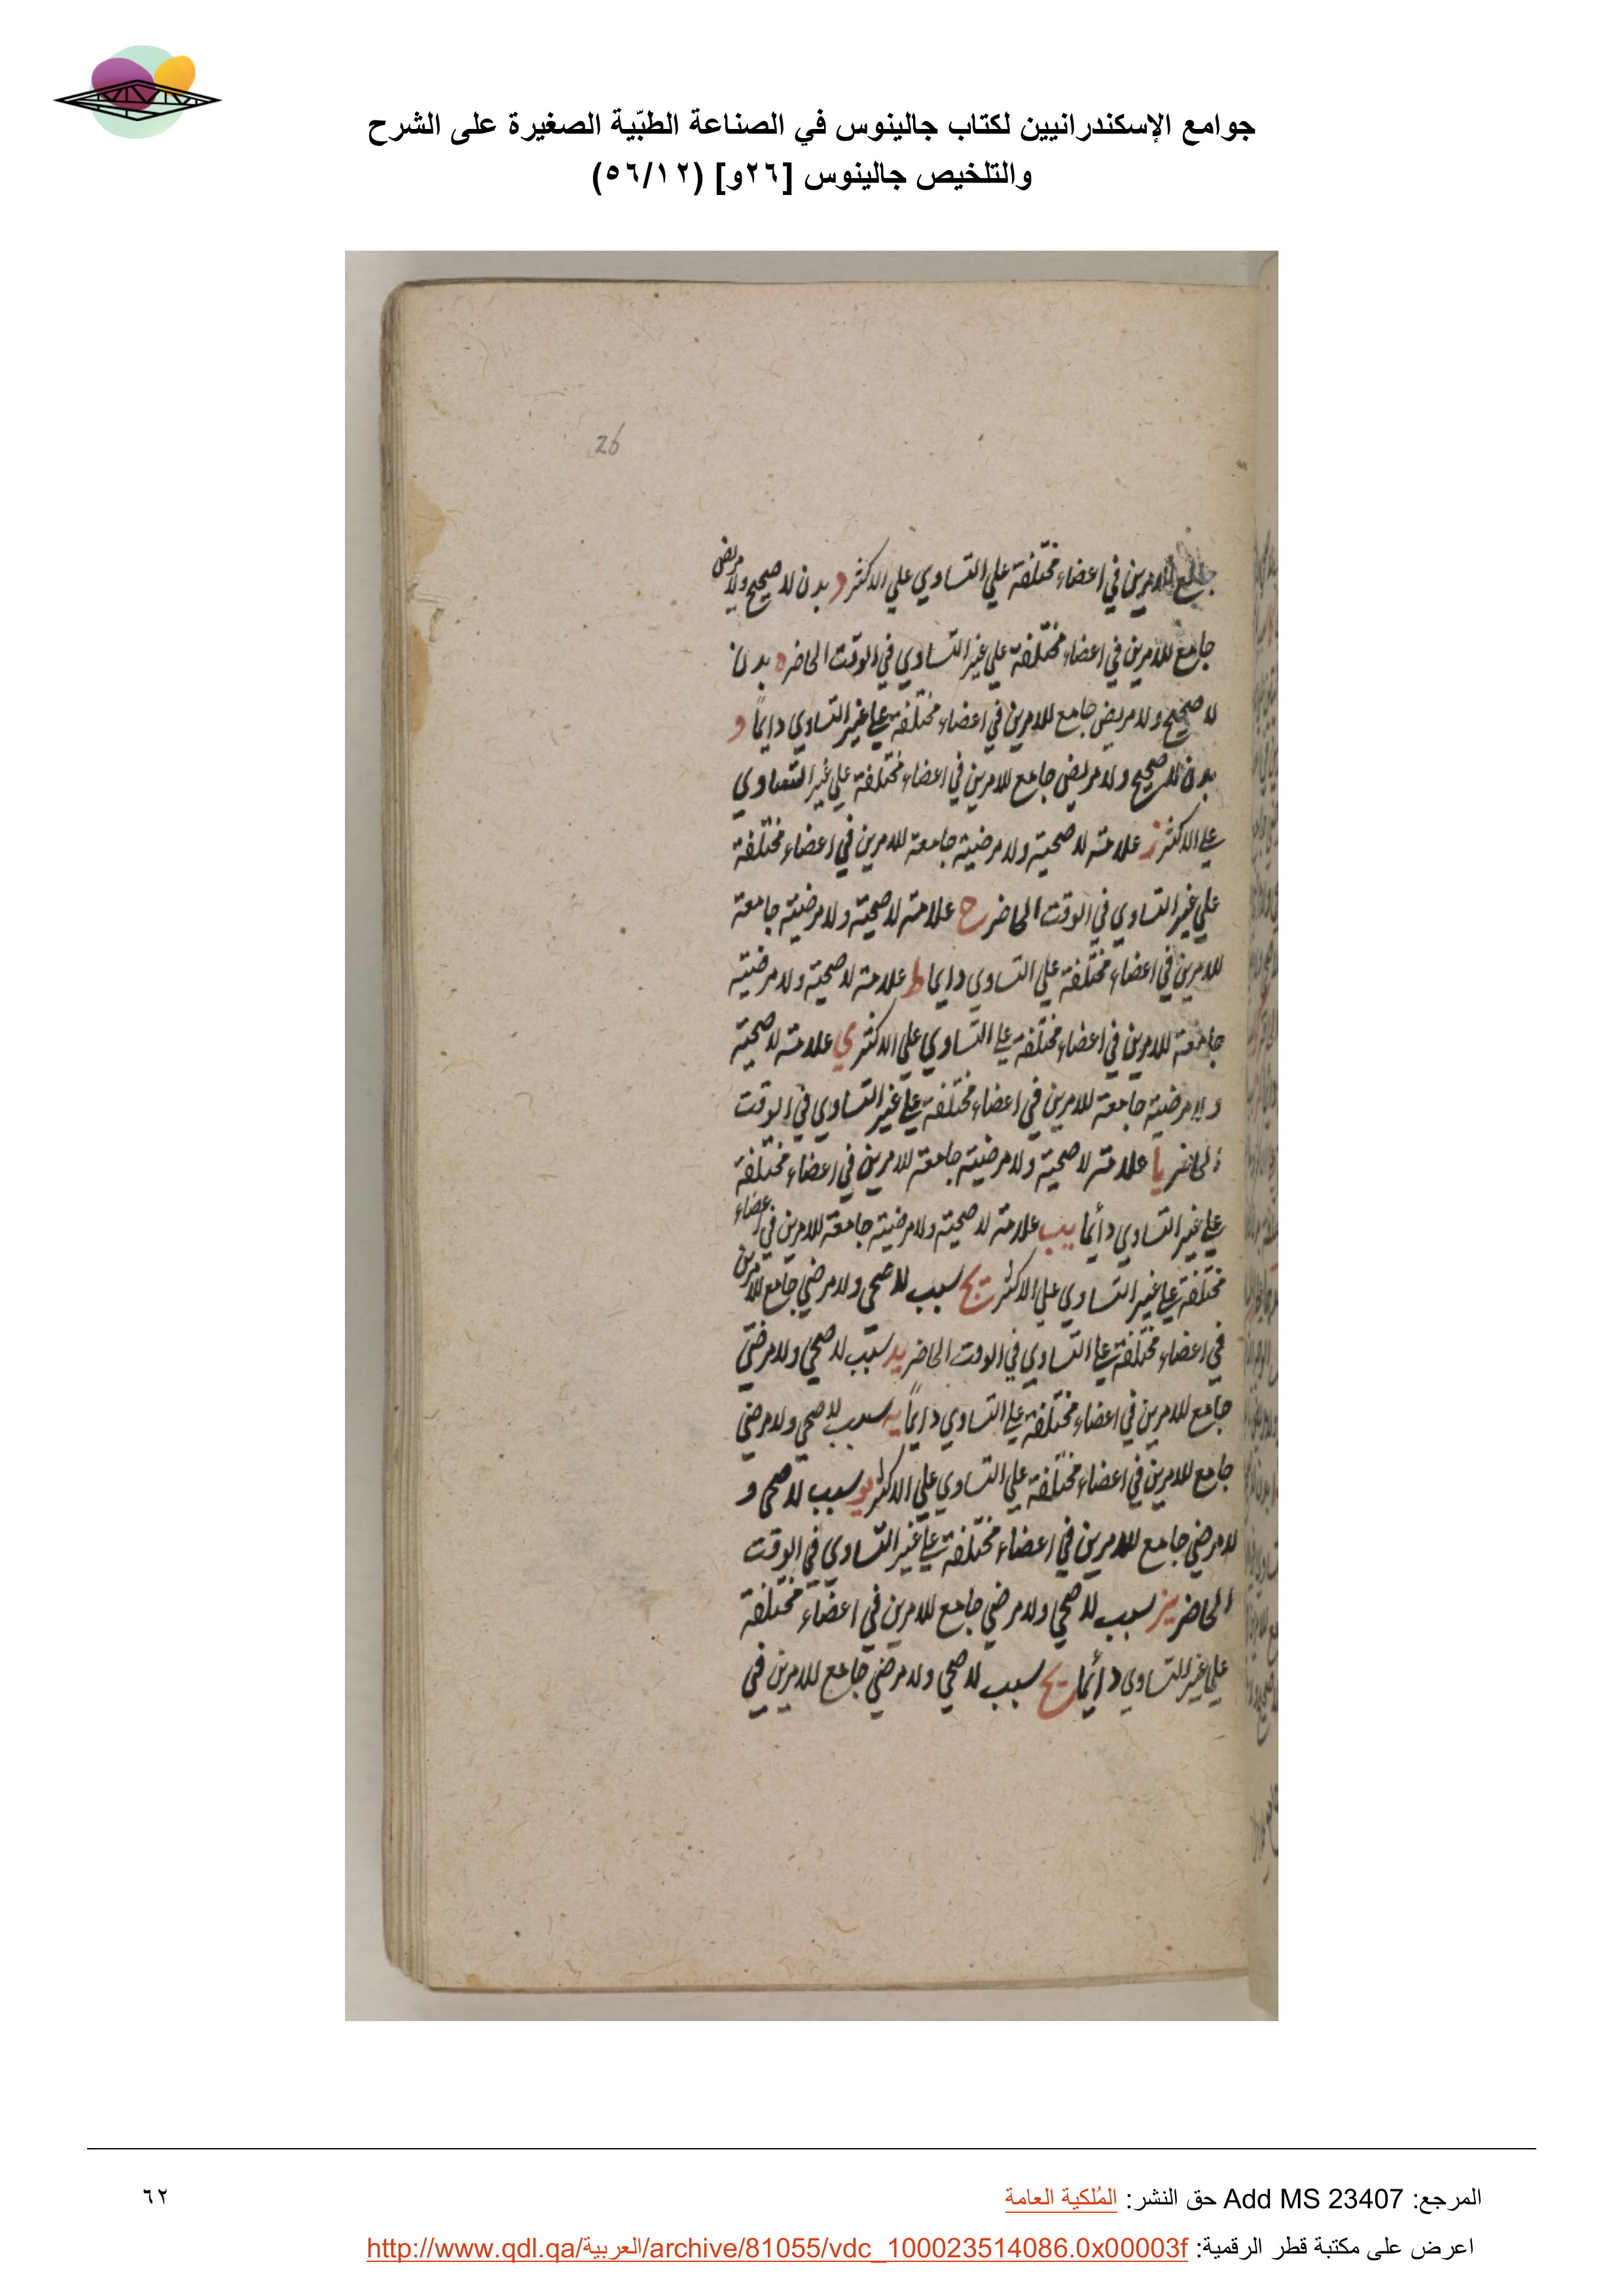 جوامع الإسكندرانيين لكتاب جالينوس في الصناعة الطبّية الصغيرة على الشرح
والتلخيص جالينوس [٢٦و] (٥٦/١٢)
26
جامع للامرين في اعضاء مختلفة علي التساوي علي الاكثر د بدن لا صحيح ولا مريض
جامع للامرين في اعضاء مختلفة علي غير التساوي في الوقت الحاضر ه بدن
لا صحيح ولا مريض جامع للامرين في اعضاء مختلفة علي غير التساوي دايماً و
بدن لا صحيح ولا مريض جامع للامرين في اعضاء مختلفة علي غير التساوي
علي الاكثر ز علامة لا صحية ولا مرضية جامعة للامرين في اعضاء مختلفة
علي غير التساوي في الوقت الحاضر ح علامة لا صحية ولا مرضية جامعة
للامرين في اعضاء مختلفة علي التساوي دايما ط علامة لا صحية ولا مرضية
جامعة للامرين في اعضاء مختلفة علي التساوي علي الاكثر ي علامة لا صحية
ولا مرضية جامعة للامرين في اعضاء مختلفة علي غير التساوي في الوقت
الحاضر يا علامة لا صحية ولا مرضية جامعة للامرين في اعضاء مختلفة
علي غير التساوي دأيما يب علامة لا صحية ولا مرضية جامعة للامرين في اعضاء
مختلفة علي غير التساوي علي الاكثر يج سبب لا صحي ولا مرضي جامع للامرين
في اعضاء مختلفة علي التساوي في الوقت الحاضر يد سبب لا صحي ولا مرضي
جامع للامرين في اعضاء مختلفة علي التساوي دايماً يه سبب لا صحي ولا مرضي
جامع للامرين في اعضاء مختلفة علي التساوي علي الاكثر يو سبب لا صحي و
لا مرضي جامع للامرين في اعضاء مختلفة علي غير التساوي في الوقت
الحاضر يز سبب لا صحي ولا مرضي جامع للامرين في اعضاء مختلفة
علي غير التساوي دأيما يح سبب لا صحي ولا مرضي جامع للامرين في
المرجع: Add MS 23407 حق النشر: المُلكية العامة
٦٢
اعرض على مكتبة قطر الرقمية: http://www.qdl.qa/العربية/archive/81055/vdc_100023514086.0x00003f